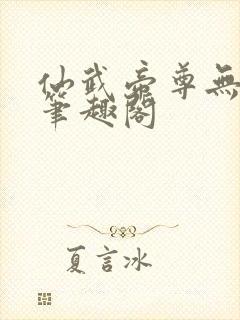 仙武帝尊無
筆趣閣
夏言冰